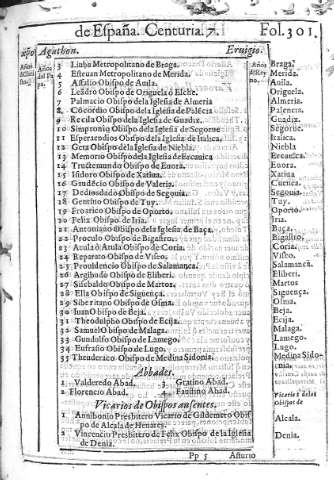 de España. Centuria. 7. Fol. 301.
Agathon. Eruigio.
3 Liuba Metropolitano de Braga. Braga.
4 Esteuan Metropolitano de Merida. Merida.
5 Assalio Obispo de Auila. Auila.
6 Leandro Obispo de Origuela d Elche. Origuela.
7 Palmacio Obispo de la Iglesia de Almeria Almeria.
8 Cõcordio Obispo de la Iglesia de Palẽcia Palencia
9 Recila Obispo de la Iglesia de Guadix. Guadix.
10 Simpronio Obispo de la Iglesia de Segorue Segorue.
11 Esperaendios Obispo de la Iglesia de Italica. Italica
12 Geta Obispo de la Iglesia de Niebla. Niebla
13 Memorio Obispo de la Iglesia de Ercauica Ercauica.
14 Tructemundo Obispo de Euora. Euora.
15 Isidoro Obispo de Xatiua. Xatiua
16 Gaudecio Obispo de Valeria.
17 Deodisclado Obispo de Segouia. Segouia
18 Gentino Obispo de Tuy. Tuy.
19 Froarico Obispo de Oporto. Oporto.
20 Felix Obispo de Iria. Iria.
21 Antoniano Obispo de la Iglesia de Baça. Baça.
22 Proculo Obispo de Bigastro. Bigastro
23 Atula Obispo de Coria. Coria.
24 Reparato Obispo de Viseo. Viseo.
25 Prouidencio Obispo de Salamanca. Salamanca.
26 Argibado Obispo de Eliberi. Eliberi.
27 Sisebaldo Obispo de Martos. Martos
28 Ella Obispo de Siguença. Siguença.
29 Siberiano Obispo de Osma. Osma.
30 Iuan Obispo de Beja. Beja.
31 Theodulpho Obispo de Ecija. Ecija.
32 Samuel Obispo de Malaga. Malaga
33 Gundulfo Obispo de Lamego. Lamego.
34 Eufrasio Obispo de Lugo. Lugo.
35 Theuderaco Obispo de Medina Sidonia. Medina Sido-
Abbades.
1 Valderedo Abad. 3 Gratino Abad.
2 Florencio Abad. 4 Faustino Abad.
Vicarios de Obispos ausentes. Vicarios de los
1 Annibonio Presbitero Vicario de Gildemero Obis
po de Alcala de Henares. Alcala.
2 Vincencio Presbitero de Felix Obispo de la Iglesia
de Denia. Denia.
Pp 5 Asturio